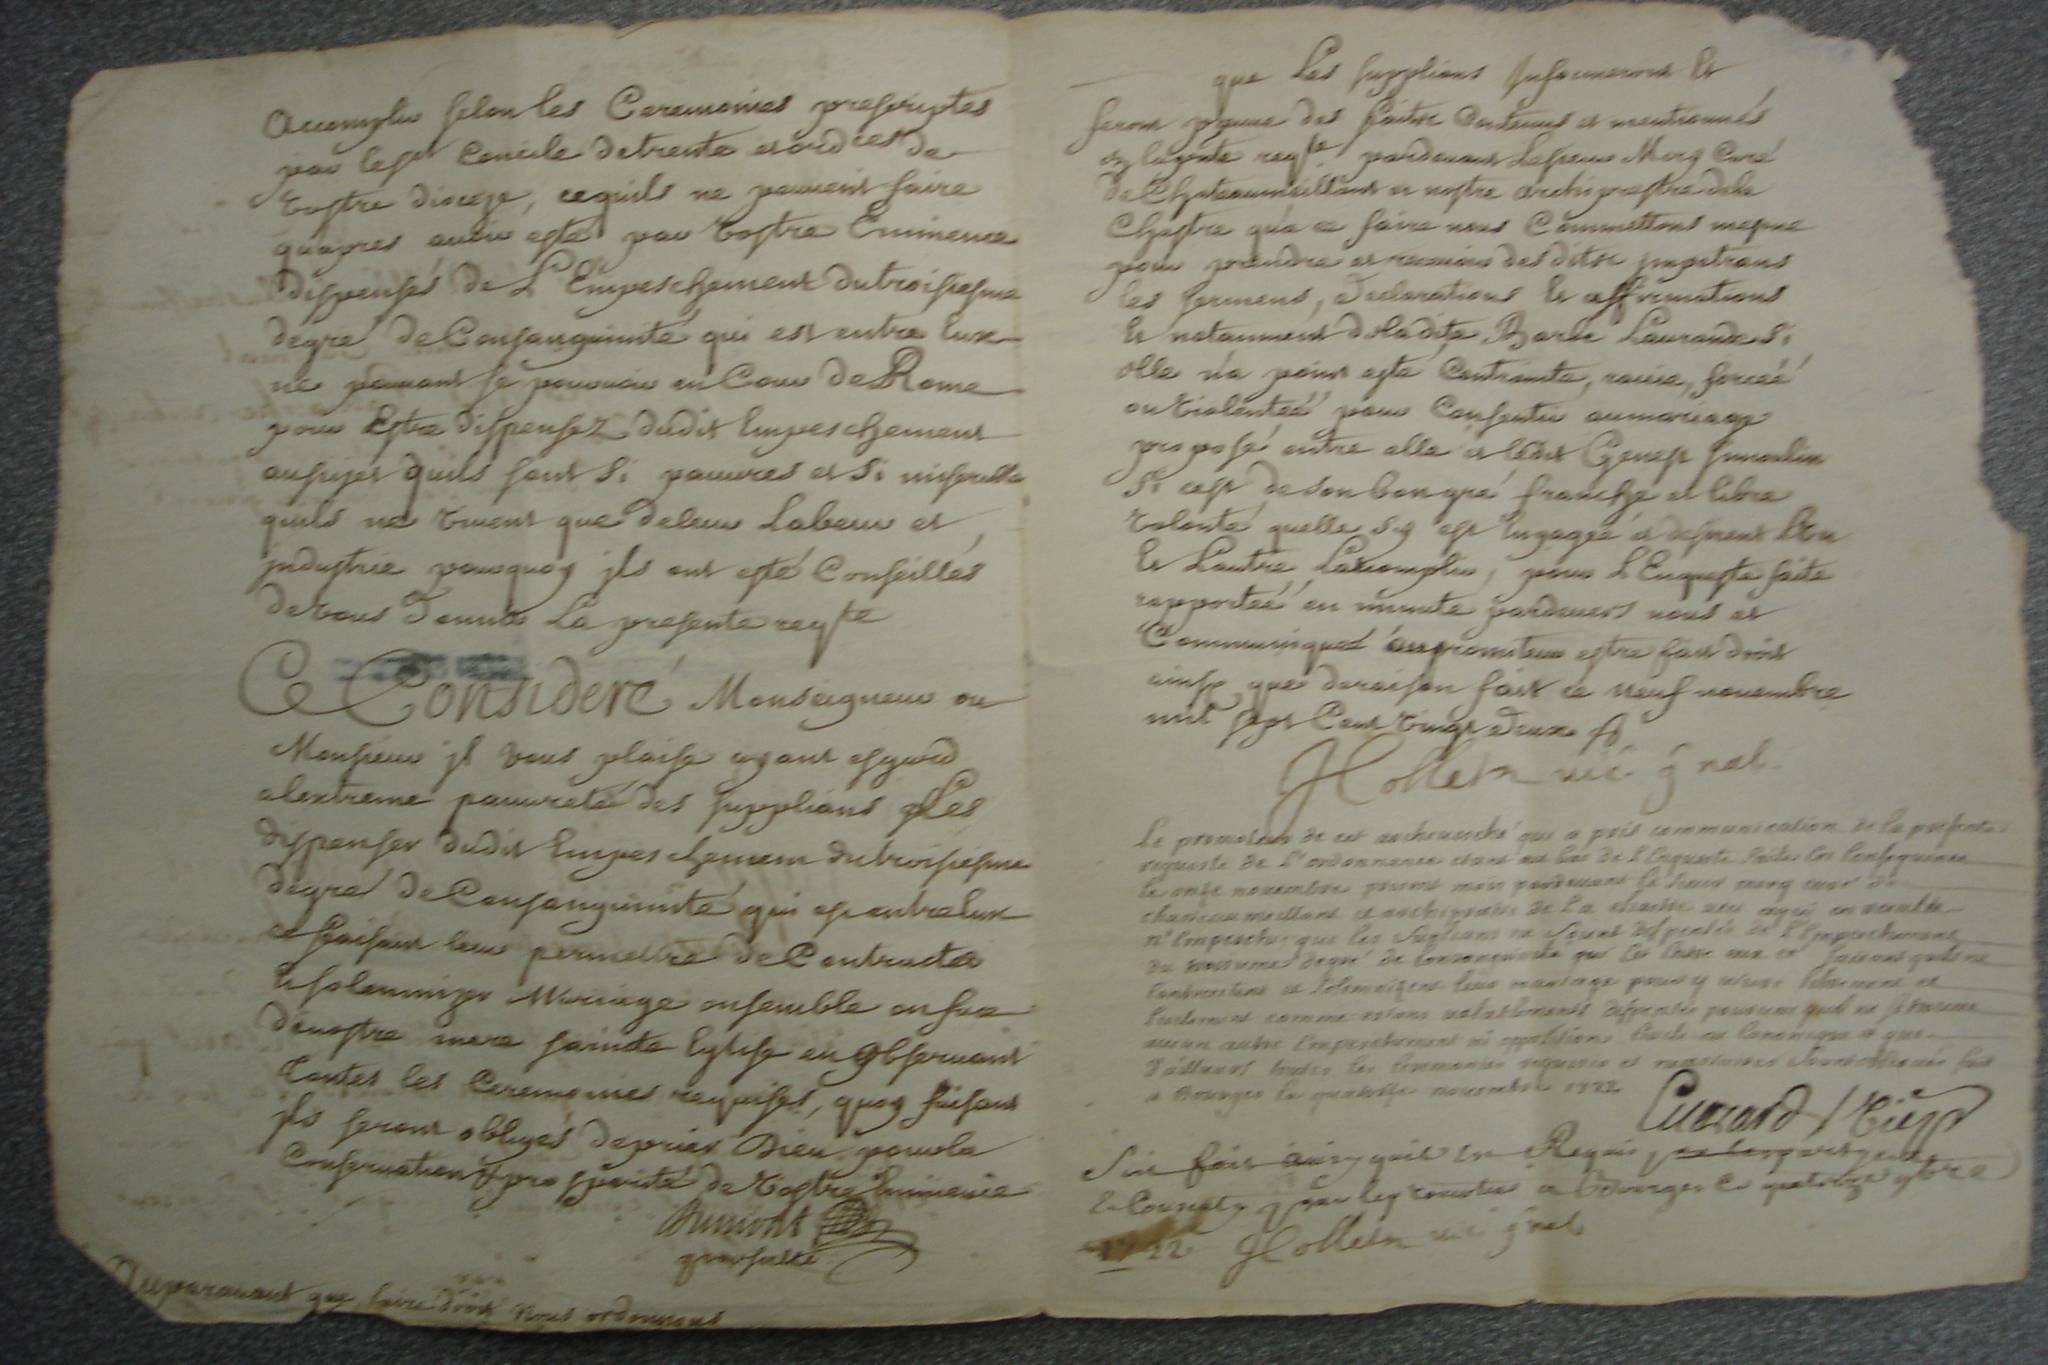 Accomplir selon les Ceremonies prescriptes
par le st Concile de trente et ordres de
Vostre dioceze, cequils ne peuvent faire
quapres avoir esté par Vostre Eminence
dispensés de L'Empeschement du troisiesme
degré de Consanguinité qui est entre Eux
ne pouvant se pourvoir en Cour de Rome
pour Estre dispensez dudit Empeschement
au sujet quils sont si pauvres et si miserable
quils ne vivent que de leur Labeur et
jndustrie pourquoy jls ont esté Conseillés
de vous donner La presente reqte
Ce Consideré Monseigneur ou
Monsieur jl vous plaise ayant esgard
a lextreme pauvreté des supplians Les
dispenser dudit Empeschement du troisiesme
degré de Consanguinité qui est entre Eux
ce faisant leur permettre de Contracter
et solemnizer Mariage ensemble en face
de nostre mere sainte Eglise en observant
toutes les Ceremonies requises, quoy faisant
jls seront obligés de prier Dieu pour la
Conservation & prosperité de Vostre Eminence
Dumont
Auparavant que faire droit Nous ordonnons
que Les supplians jnformeront et
feront preuve des faits Contenus et mentionnés
en la pnte reqte pardevant Le sieur Merq Curé
de Chateaumeillant et nostre archiprestre de la
Chastre qua ce faire nous Commettons mesme
pour prendre et recevoir des dits jmpetrans
les sermens, Declarations et affirmations
Et notamment de ladite Barbe Laurande si
elle n'a point esté Contrainte, ravie, forcéé
ou violentéé pour Consentir au mariage
proposé entre elle et ledit Genest
si cest de son bon gré franche et libre
volonté quelle s'y est Engagée et desirent L'un
Et L'autre L'accomplir, pour L'Enqueste faite
rapportéé en minute pardevers nous et
Communiqueé au promoteur estre fait droit
ainsy que de raison fait ce neuf novembre
mil sept Cent vingt deux
Hollein vic gnal
Le promoteur de cet archeveché qui a pris communication de la presente
requeste de l'ordonnance estant au bas de l'Enqueste faite En Consequence
le onze novembre present mois pardevant le sieur merq curé de
chasteaumeillant et archipretre de La chastre
n'Empesche que les suplians ne soient dispensés de l'Empeschement
du troisieme degré de consanguinité qui est entre eux et faisant quils ne
Contractent et solemnizent leur mariage pour y vivre librement et
licitement comme estans valablement dispensés pourveu quil ne se trouve
aucun autre Empeschement ni opposition Civile ou Canonique et que
d'ailleurs toutes les Ceremonies requises et necessaires soient observées fait
a Bourges le quatorse novembre 1722
Soit fait ainsy quil est Requis
a Bourges ce quatorze 9bre
1722 Hollein vic gnal